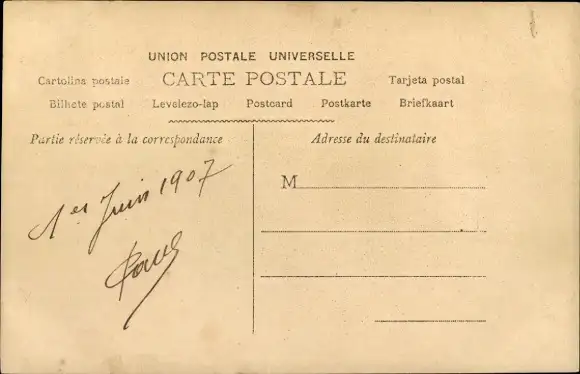 UNION POSTALE UNIVERSELLE
Cartolina postale CARTE POSTALE Tarjeta postal
Bilhete postal Levelezo-lap Postcard Postkarte Briefkaart
Partie réservée à la correspondance
Adresse du destinataire
M
1er Juin 1907